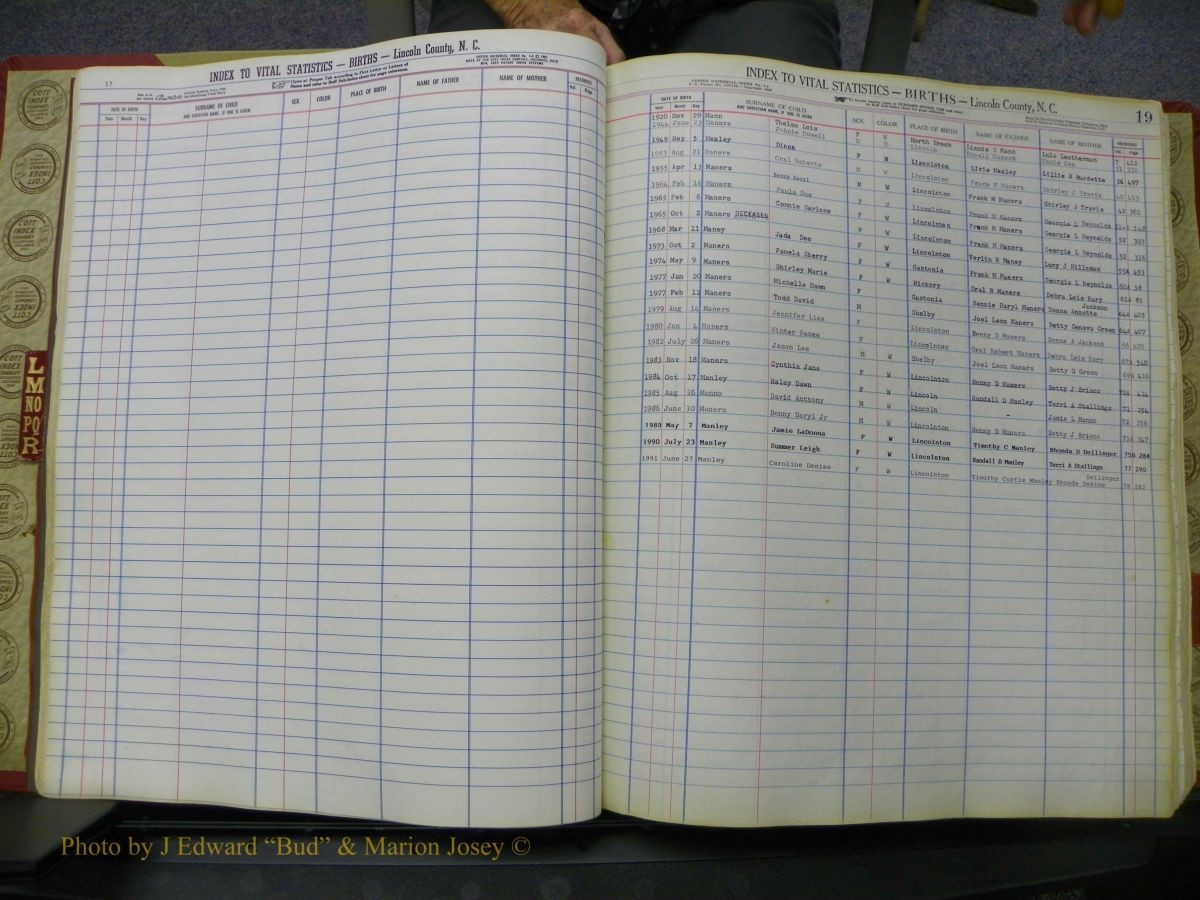 INDEX TO VITAL STATISTICS — BIRTHS — Lincoln County, N. C.
17
DATE OF BIRTH SURNAME OF CHILD SEX COLOR PLACE OF BIRTH NAME OF FATHER NAME OF MOTHER RECORDED
Year Month Day AND CHRISTIAN NAME, IF ONE IS GIVEN Vol. Page
INDEX TO VITAL STATISTICS — BIRTHS — Lincoln County, N. C.
19
DATE OF BIRTH SURNAME OF CHILD SEX COLOR PLACE OF BIRTH NAME OF FATHER NAME OF MOTHER RECORDED
Year Month Day AND CHRISTIAN NAME, IF ONE IS GIVEN Vol. Page
1920 Nov 29 Mann Thelma Lois F W North Brook Linnie G Mann Lula Leatherman 7 412
1944 June 23 Maners Johnie Howell M W Lincoln Howell Maners
1949 Sep 5 Manley Diann F W Lincolnton Livie Manley Lillie B Burdette 36 497
1953 Aug 21 Maners Oral Roberts M W Lincolnton Frank M Maners Shirley J Travis 40 413
1955 Apr 13 Maners Benny Daryl M W Lincolnton Frank M Maners Shirley J Travis 42 361
1964 Feb 16 Maners Paula Sue F W Lincolnton Frank M Maners Georgia L Reynolds 51-A 348
1965 Feb 6 Maners Connie Darlene F W Lincolnton Frank M Maners Georgia L Reynolds 52 303
1965 Oct 2 Maners DECEASED F W Lincolnton Frank M Maners Georgia L Reynolds 52 316
1968 Mar 11 Maney Jada Dee F W Lincolnton Verlin R Maney Lucy J Hillsman 55A 453
1973 Oct 2 Maners Pamela Sherry F W Gastonia Frank M Maners Georgia L Reynolds 60A 38
1974 May 9 Maners Shirley Marie F W Hickory Oral R Maners Debra Lois Bury 61A 85
1977 Jan 20 Maners Michelle Dawn F Gastonia Bennie Daryl Maners Donna Annette Jackson 64A 405
1977 Feb 12 Maners Todd David M Shelby Joel Leon Maners Betty Geneva Green 64A 407
1979 Aug 14 Maners Jennifer Liza F Lincolnton Benny D Maners Donna A Jackson 66 403
1980 Jan 4 Maners Winter Renee F Lincolnton Oral Robert Maners Debra Lois Bury 67A 340
1982 July 26 Maners Jason Lee M W Shelby Joel Leon Maners Betty G Green 69A 416
1983 Nov 18 Maners Cynthia Jane F W Lincolnton Benny D Maners Betty J Brisco 70A 414
1984 Oct 17 Manley Haley Dawn F W Lincoln Randall D Manley Terri A Stallings 71 254
1985 Aug 26 Manno David Anthony M W Lincoln - Jamie L Manno 72 256
1986 June 30 Maners Benny Daryl Jr M W Lincolnton Benny D Maners Betty J Brisco 73A 247
1988 May 7 Manley Jamie LaDonna F W Lincolnton Timothy C Manley Rhonda D Dellinger 75B 284
1990 July 23 Manley Summer Leigh F W Lincolnton Randall D Manley Terri A Stallings 77 290
1991 June 27 Manley Caroline Denise F W Lincolnton Timothy Curtis Manley Rhonda Denise Dellinger 78 282
L M NO PQ R
COTT INDEX COMPANY
Photo by J Edward “Bud” & Marion Josey ©